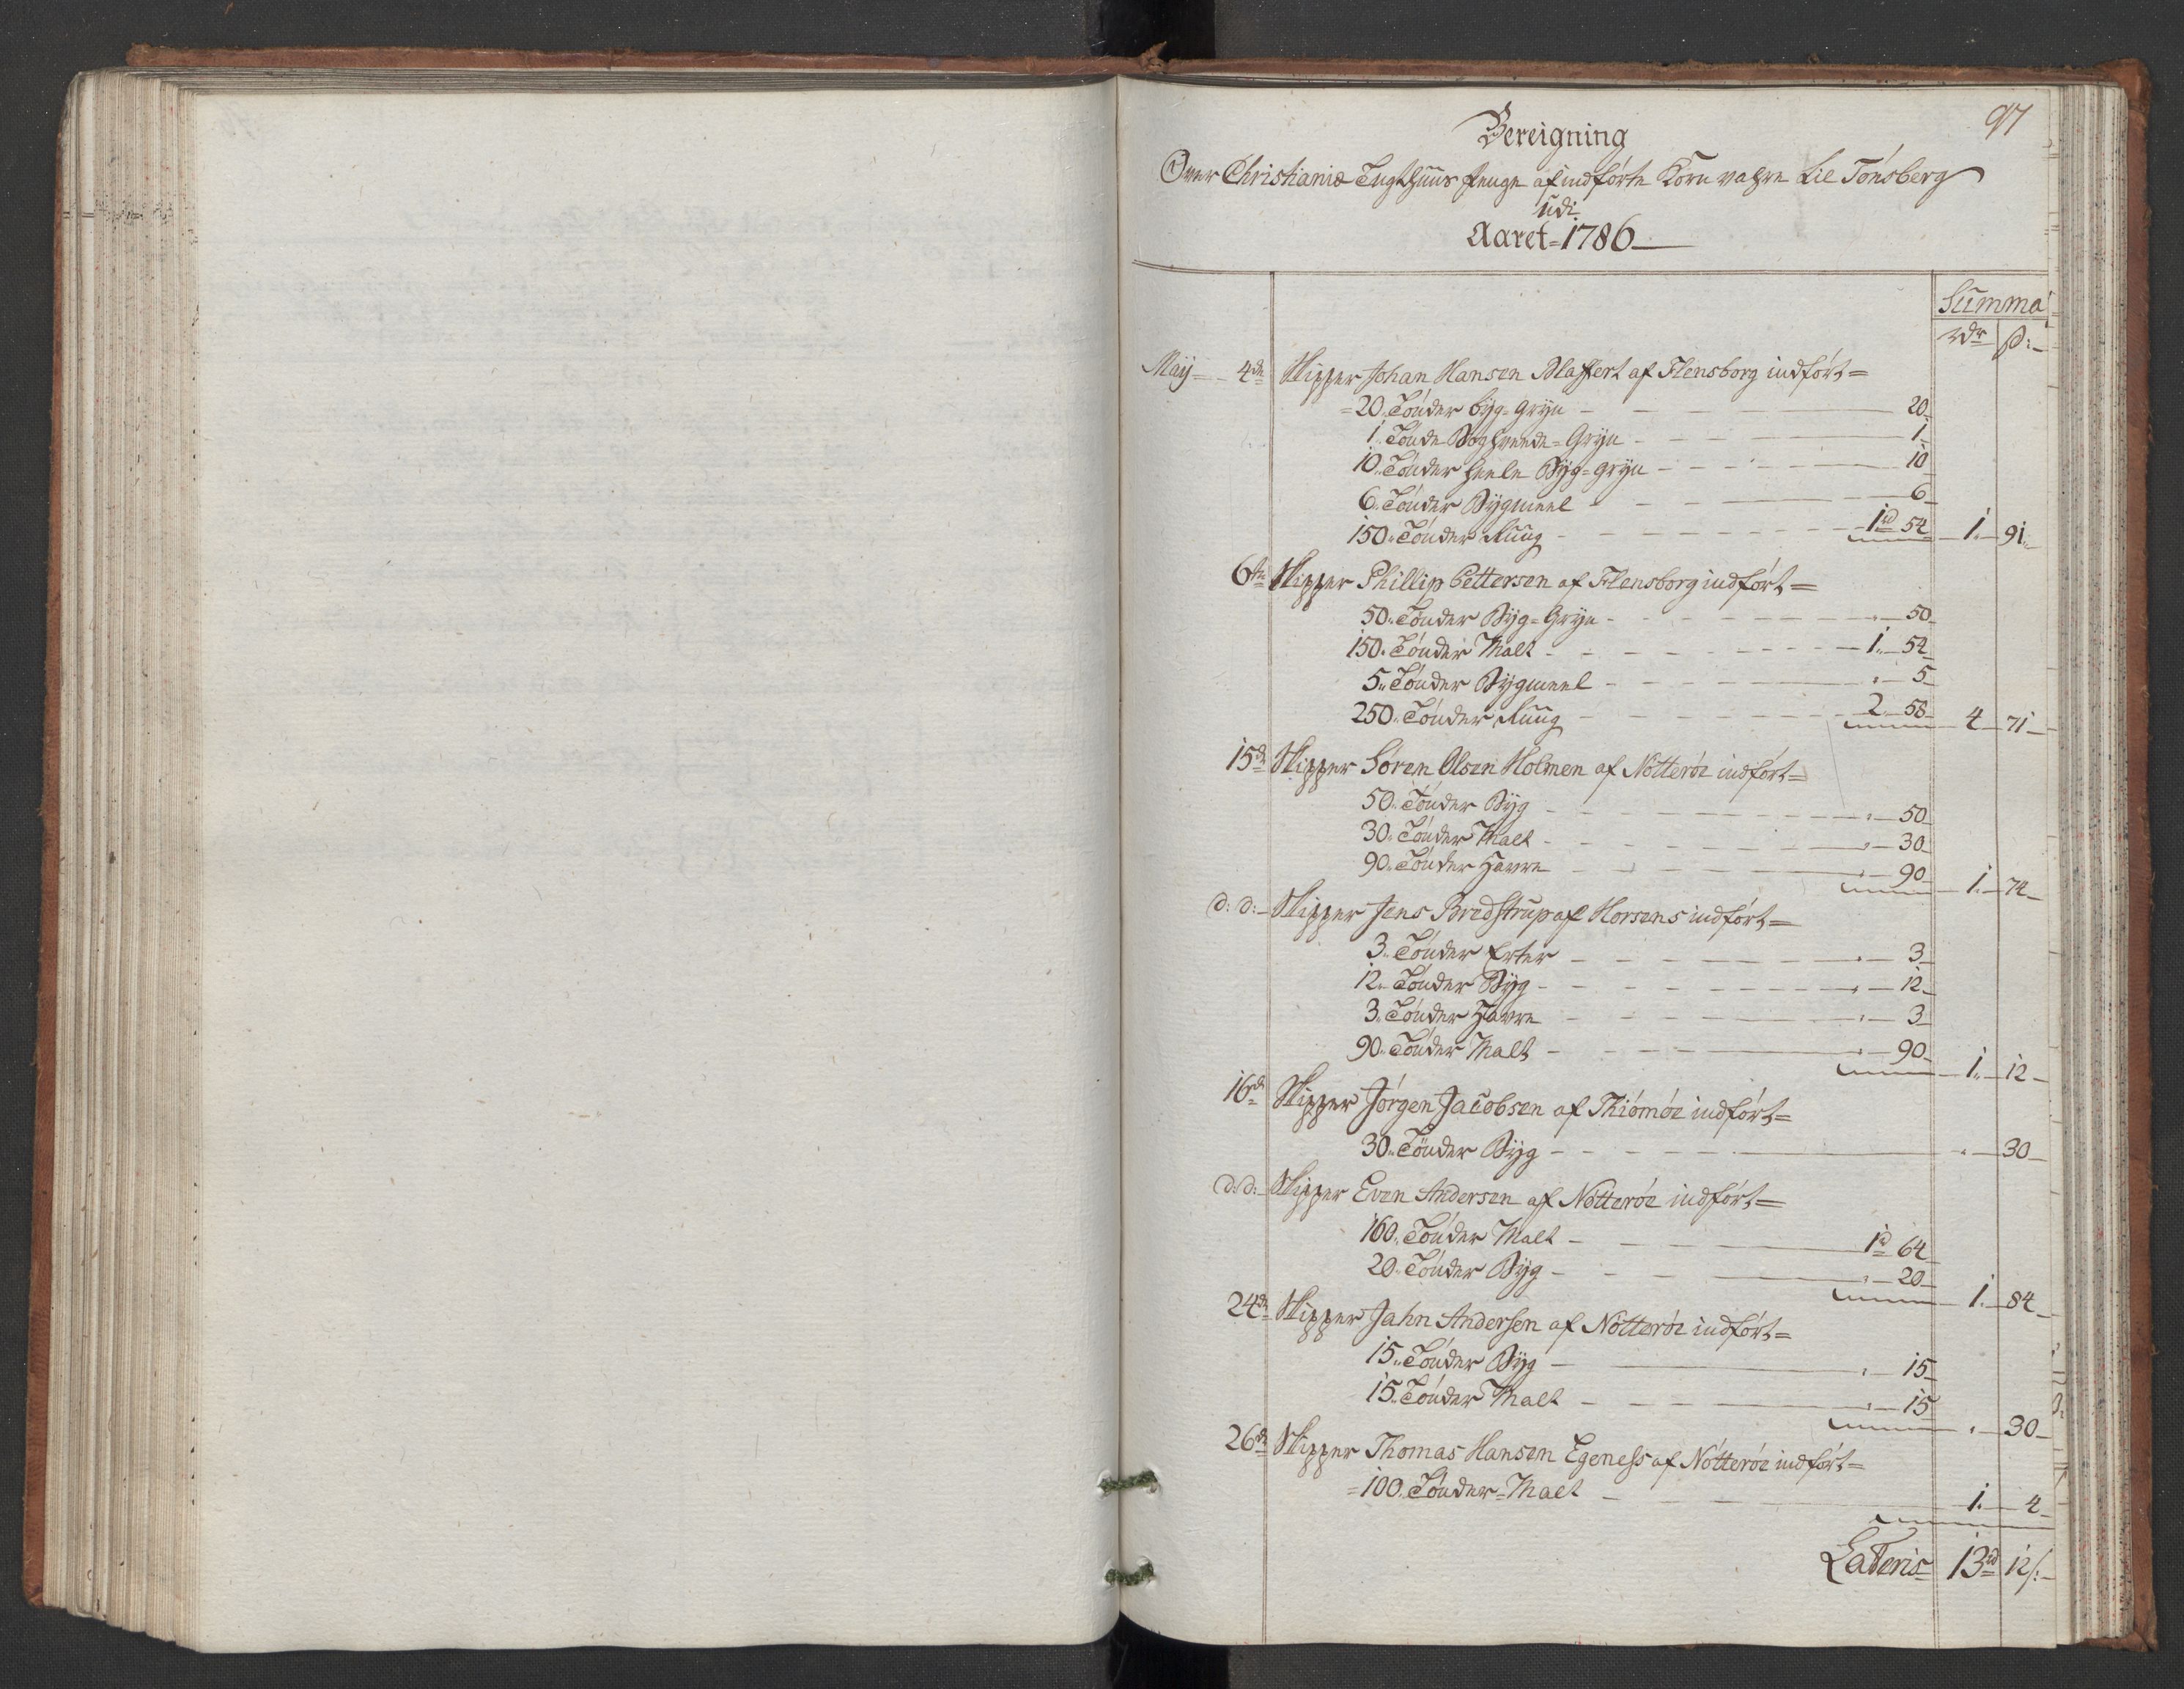 97
Bereigning
Over Christianiæ Tugthuus Penge af indførte Korn vahre til Tønsberg
udi
Aaret 1786
Summa
rdr ß:
Maÿ 4de Skipper Johan Hansen Blaffert af Flensborg indført=
=20. Tønder Bÿg=Grÿn — 20
1. Tønde Boghveede=Grÿn — 1
10. Tønder heele Bÿg=grÿn — 10
6. Tønder Bÿgmeel — 6
150. Tønder Ruug — 1rd 54 1. 91.
6te Skipper Phillip Pettersen af Flensborg indført=
50. Tønder Bÿg=Grÿn — 50
150. Tønder Malt — 1. 54
5. Tønder Bÿgmeel — 5
250. Tønder Ruug — 2 58 4 71
15de Skipper Søren Olsen Holmen af Nøtterøe indført=
50. Tønder Bÿg — 50
30. Tønder Malt — 30
90. Tønder Havre — 90 1. 74
d: d: Skipper Jens Bredstrup af Horsens indført=
3. Tønder Erter — 3
12. Tønder Bÿg — 12
3. Tønder Havre — 3
90. Tønder Malt — 90 1. 12
16de Skipper Jørgen Jacobsen af Thiømøe indført=
30. Tønder Bÿg — 30
d: d: Skipper Even Andersen af Nøtterøe indført=
160. Tønder Malt — 1rd 64
20. Tønder Bÿg — 20 1. 84
24de Skipper Jahn Andersen af Nøtterøe indført=
15. Tønder Bÿg — 15
15. Tønder Malt — 15 30
26de Skipper Thomas Hansen Egeness af Nøtterøe indført=
=100. Tønder=Malt — 1. 4
Lateris 13rd 12ß: